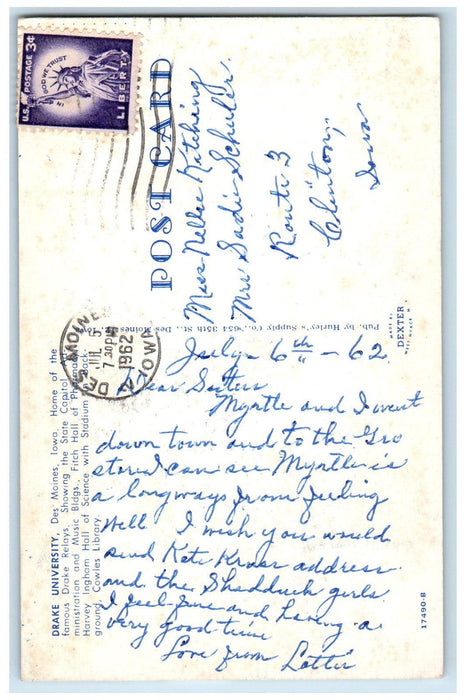 U.S. POSTAGE 3¢
IN GOD WE TRUST
LIBERTY
POST CARD
DES MOINES
JUL 5
7 30 PM
1962
IOWA
Miss Nellie Ketcheing
Mrs Sadie Schuler.
Route 3
Clinton,
Iowa
Pub. by Hurley's Supply Co., 654 35th St., Des Moines, Iowa
MADE BY
DEXTER
July - 6th - 62
Dear Sister
Myrtle and I went
down town and to the Gro
store I can see Myrtle is
a longways from feeling
Well I wish you would
send Kate Kruse address
and the Shadduck girls
I feel fine and having a
very good time
Love from Lottie
DRAKE UNIVERSITY, Des Moines, Iowa, Home of the
famous Drake Relays. Showing the State Capitol, Ad-
ministration and Music Bldgs., Fitch Hall of Pharmacy,
Harvey Ingham Hall of Science with Stadium Back-
ground, Cowles Library.
17490-B